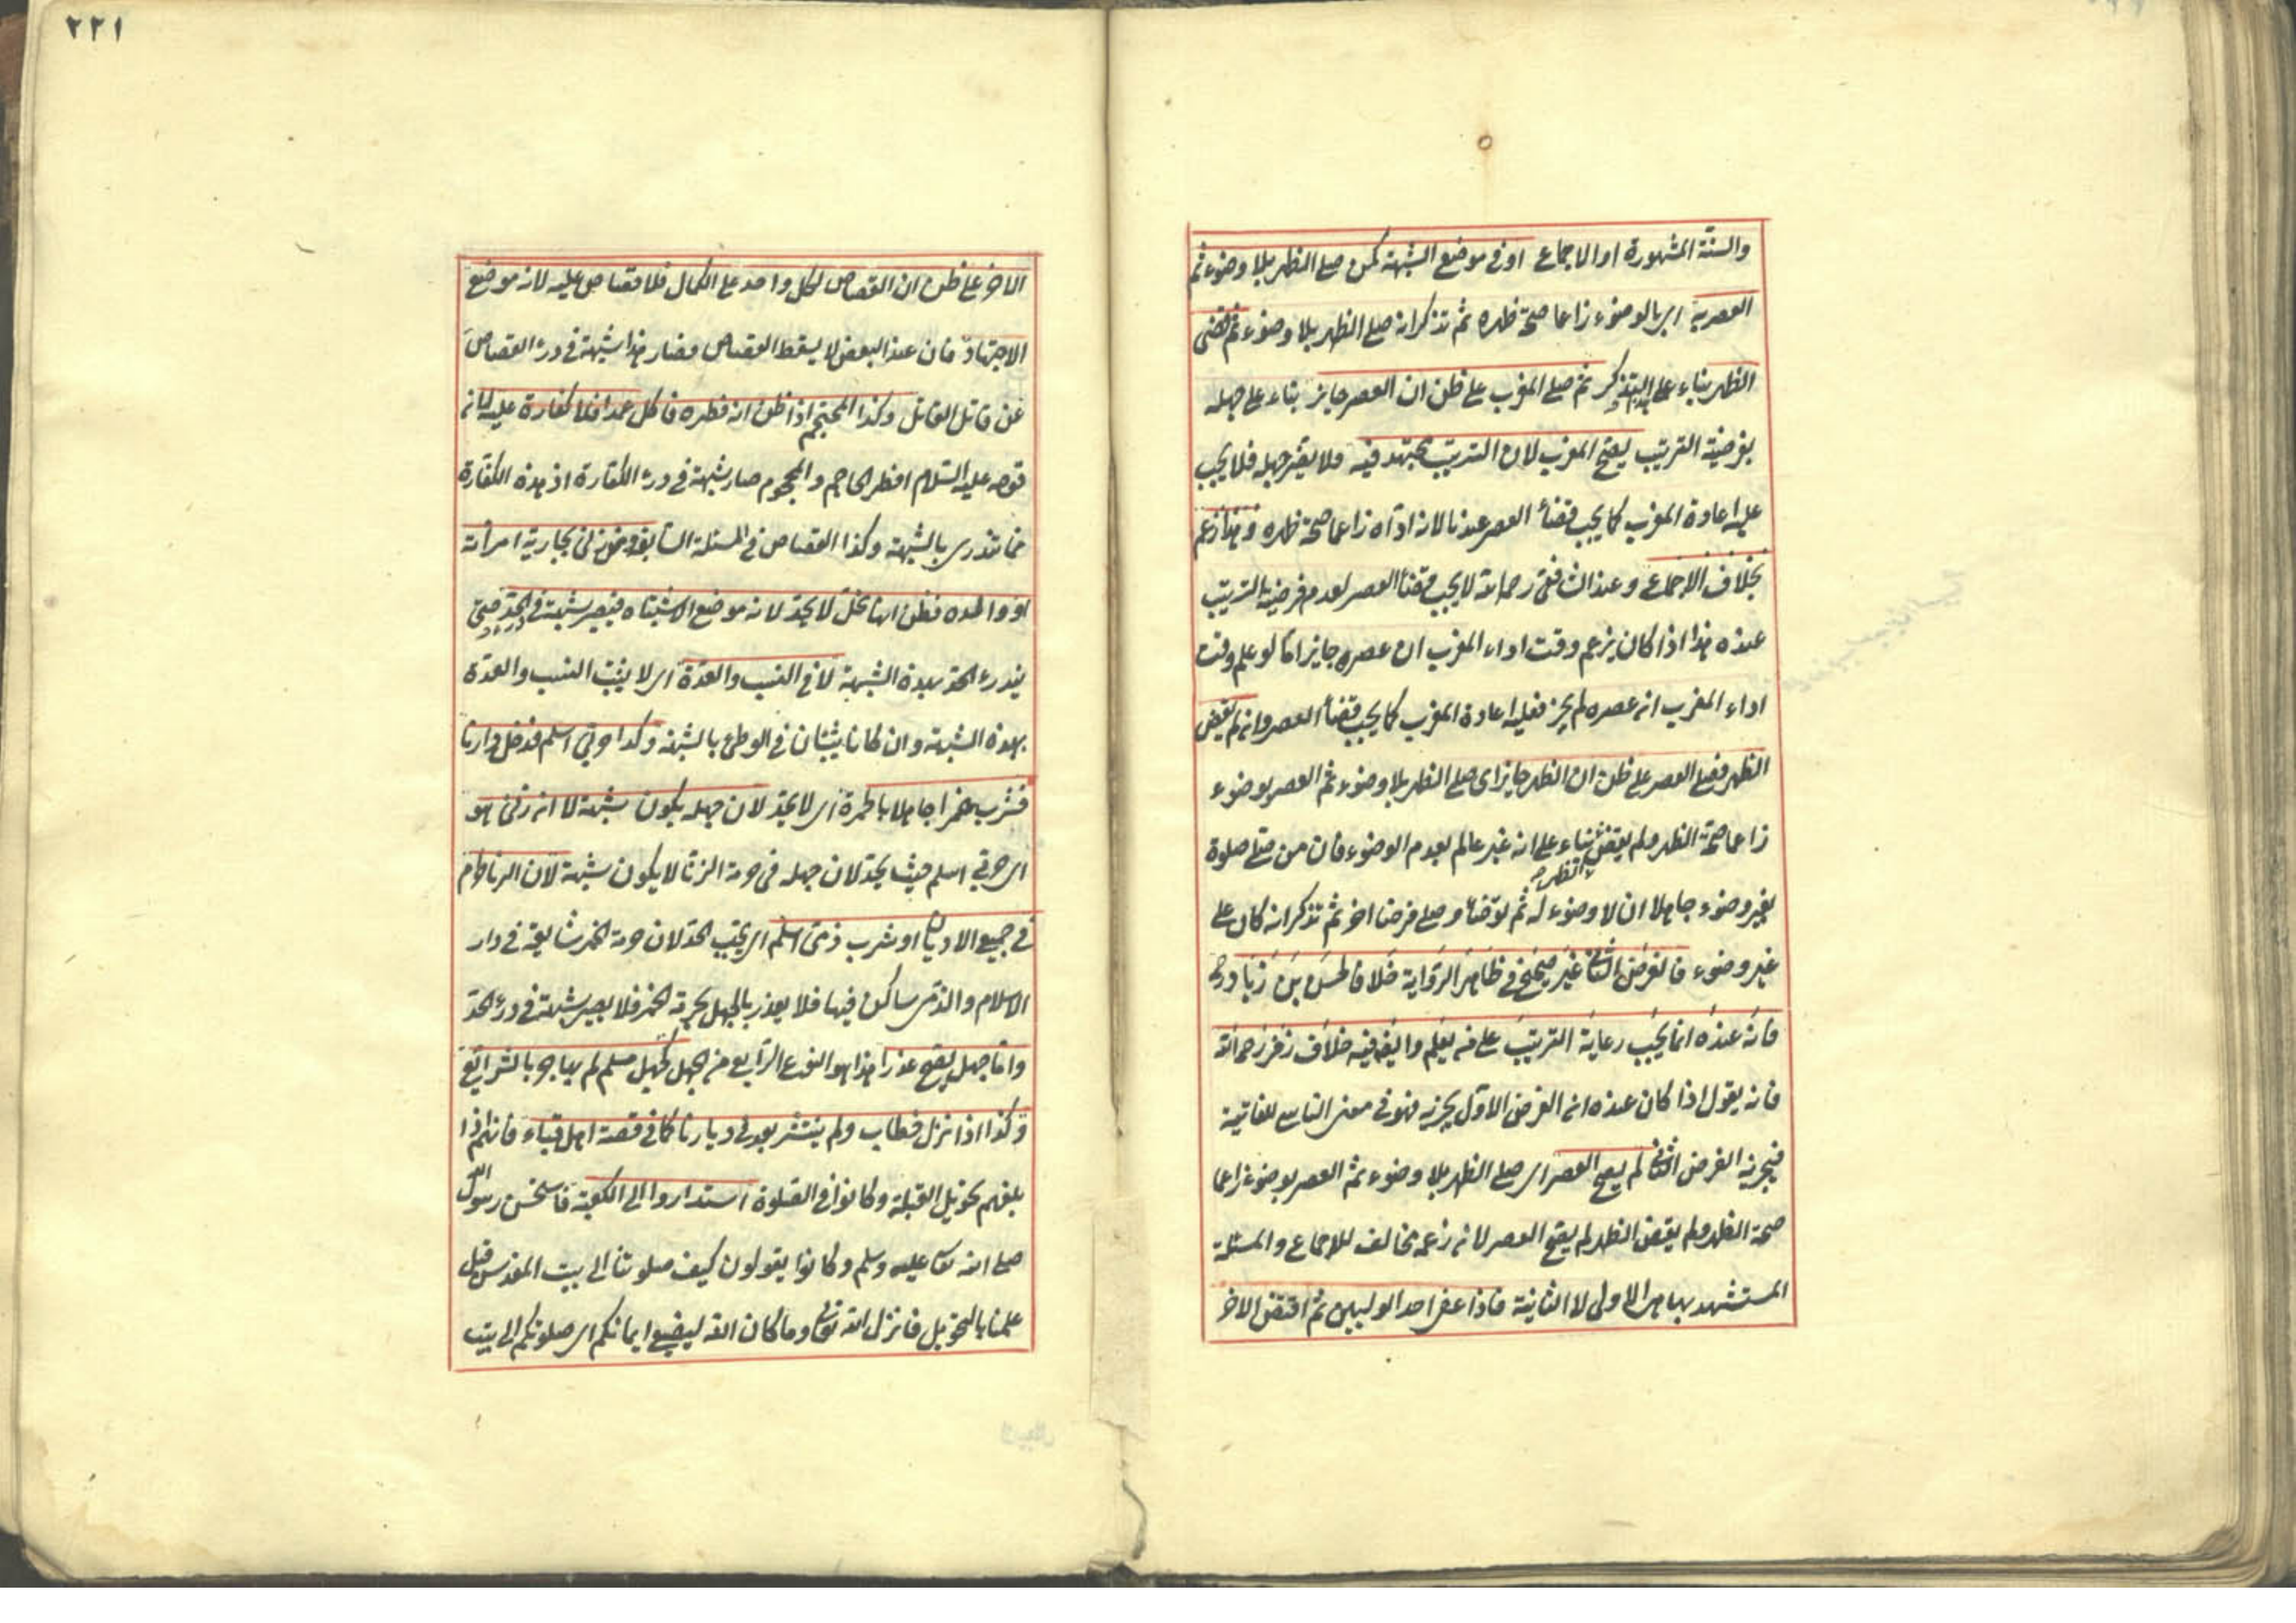 والسنّة المشهورة او الاجماع او في موضع الشبهة كمن صلى الظهر بلا وضوء ثم
العصر به اى بالوضوء زاعما صحة ظهره ثم تذكر انه صلى الظهر بلا وضوء ثم قضى
الظهر بناء على هذا التذكر ثم صلى المغرب على ظن ان العصر جايز بناء على جهله
بفرضية الترتيب يصح المغرب لان الترتيب مجتهد فيه فلا يضر جهله فلا يجب
عليه اعادة المغرب كما يجب قضاء العصر عندنا لانه اداه زاعما صحة ظهره وهذا زعم
بخلاف الاجماع وعند الشافعي رحمه الله لا يجب قضاء العصر لعدم فرضية الترتيب
عنده هذا اذا كان يزعم وقت اداء المغرب ان عصره جايز اما لو علم وقت
اداء المغرب ان عصره لم يجز فعليه اعادة المغرب كما يجب قضاء العصر وان لم يقض
الظهر فصلى العصر على ظن ان الظهر جايز اى صلى الظهر بلا وضوء ثم العصر بوضوء
زاعما صحة الظهر ولم يقض الظهر بناء على انه غير عالم بعدم الوضوء فان من صلى صلوة
بغير وضوء جاهلا ان لا وضوء له ثم توضأ وصلى فرضا اخر ثم تذكر انه كان على
غير وضوء فالفرض الثاني غير صحيح في ظاهر الرواية خلافا لحسن بن زياد رح
فانه عنده انما يجب رعاية الترتيب على من يعلم وايضا فيه خلاف زفر رحمه الله
فانه يقول اذا كان عنده ان الفرض الاول يجزيه فهو في معنى الناسي للفاتية
فيجزيه الفرض الثاني لم يصح العصر اى صلى الظهر بلا وضوء ثم العصر بوضوء زاعما
صحة الظهر ولم يقض الظهر لم يصح العصر لانه زعم مخالف للاجماع والمسئلة
المستشهد بها هي الاولى لا الثانية فاذا عفى احد الوليين ثم اقتص الاخر
٢٢١
الاخر على ظن ان القصاص لكل واحد على الكمال فلا قصاص عليه لانه موضع
الاجتهاد فان عند البعض لا يسقط القصاص فصار هذا شبهة في درء القصاص
عن قاتل القاتل وكذا المحتجم اذا ظن انه فطره فاكل عمدا فلا كفارة عليه لان
قوله عليه السلام افطر الحاجم والمحجوم صار شبهة في درء الكفارة اذ هذه الكفارة
مما تندرى بالشبهة وكذا القصاص في المسئلة السابقة ومن زنى بجارية امرأته
او والده فظن انها تحل لا يحد لانه موضع الاشتباه فيصير شبهة في الحد حتى
يندرء الحد بهذه الشبهة لا في النسب والعدة اى لا يثبت النسب والعدة
بهذه الشبهة وان كانا يثبتان في الوطئ بالشبهة وكذا حربي اسلم فدخل دارنا
فشرب خمرا جاهلا بالحرمة اى لا يحد لان جهله يكون شبهة لا ان زنى هو
اى حربي اسلم حيث يحد لان جهله في حرمة الزنا لا يكون شبهة لان الزنا حرام
في جميع الاديان او شرب ذمى اسلم اى يجب الحد لان حرمة الخمر شايعة في دار
الاسلام والذمى ساكن فيها فلا يعذر بالجهل بحرمة الخمر فلا يصير شبهة في درء الحد
واما جهل يصح عذرا هذا هو النوع الرابع من الجهل كجهل مسلم لم يهاجر بالشرايع
وكذا اذا نزل خطاب ولم ينتشر بعد في ديارنا كما في قصة اهل قباء فانهم اذا
بلغهم تحويل القبلة وكانوا في الصلوة استداروا الى الكعبة فاستحسن رسول الله
صلى الله تعا عليه وسلم وكانوا يقولون كيف صلوتنا الى بيت المقدس قبل
علمنا بالتحويل فانزل الله تعالى وما كان الله ليضيع ايمانكم اى صلوتكم الى بيت